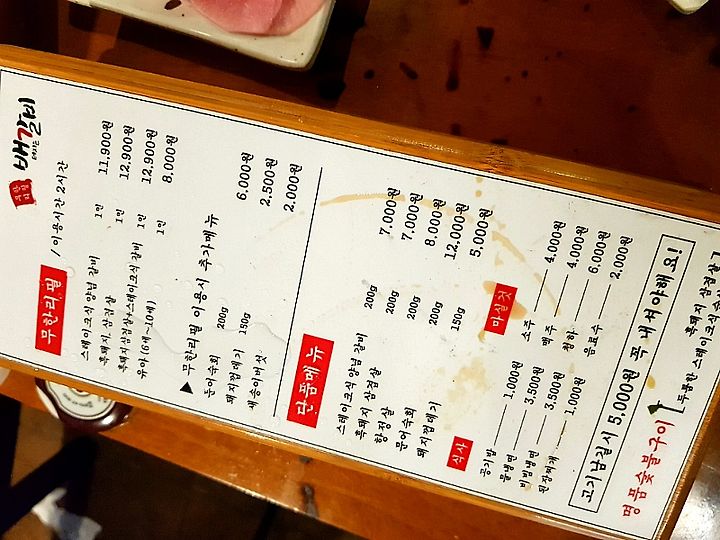 무한리필
배갈비
무한리필 / 이용시간 2시간
스테이크식 양념 갈비 1인 11,900원
흑돼지 삼겹살 1인 12,900원
흑돼지삼겹살+스테이크식 갈비 1인 12,900원
유아 (6세~10세) 1인 8,000원
▶ 무한리필 이용시 추가메뉴
문어숙회 200g 6,000원
돼지껍데기 150g 2,500원
새송이버섯 2,000원
단품메뉴
스테이크식 양념 갈비 200g 7,000원
흑돼지 삼겹살 200g 7,000원
항정살 200g 8,000원
문어숙회 200g 12,000원
돼지껍데기 150g 5,000원
식사
공기밥 1,000원
물냉면 3,500원
비빔냉면 3,500원
된장찌개 1,000원
마실것
소주 4,000원
맥주 4,000원
청하 6,000원
음료수 2,000원
고기남길시 5,000원 꼭 내셔야해요!
명품숯불구이
흑돼지 삼겹살
두툼한 스테이크식